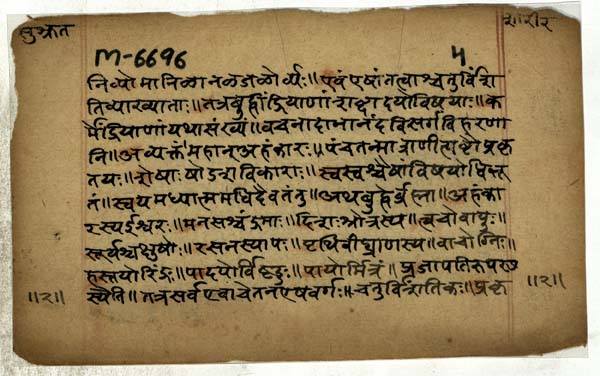 सुश्रुत
शारीर
M-6696
५
निव्योमानिलानलजलोर्व्यः॥एवंएषांतत्वाश्चतुर्विंश
तिव्याख्याताः॥तत्रबुद्धींद्रियाणांशब्दादयोविषयाः॥क
र्मेंद्रियाणांयथासंख्यं॥वचनादाभानंदविसर्गविहरणा
नि॥अव्यक्तंमहान्अहंकारः॥पंचतन्मात्राणीत्यष्टौप्रकृ
तयः॥शेषाःषोडशविकाराः॥स्वस्वश्चैषांविषयोधिभू
तं॥स्वयमध्यात्ममधिदैवतंतु॥अथबुद्धेर्ब्रह्मा॥अहंका
रस्यईश्वरः॥मनसश्चंद्रमाः॥दिशःश्रोत्रस्य॥त्वचोवायुः॥
सूर्यश्चक्षुषोः॥रसनस्यापः॥पृथिवीघ्राणस्य॥वाचोग्निः॥
हस्तयोरिंद्रः॥पादयोर्विष्णुः॥पायोर्मित्रं॥प्रजापतिरुपस्थ
स्येति॥तत्रसर्वएवाचेतनएषवर्गः॥चतुर्विंशतिकः॥प्रकृ
॥२॥
॥२॥